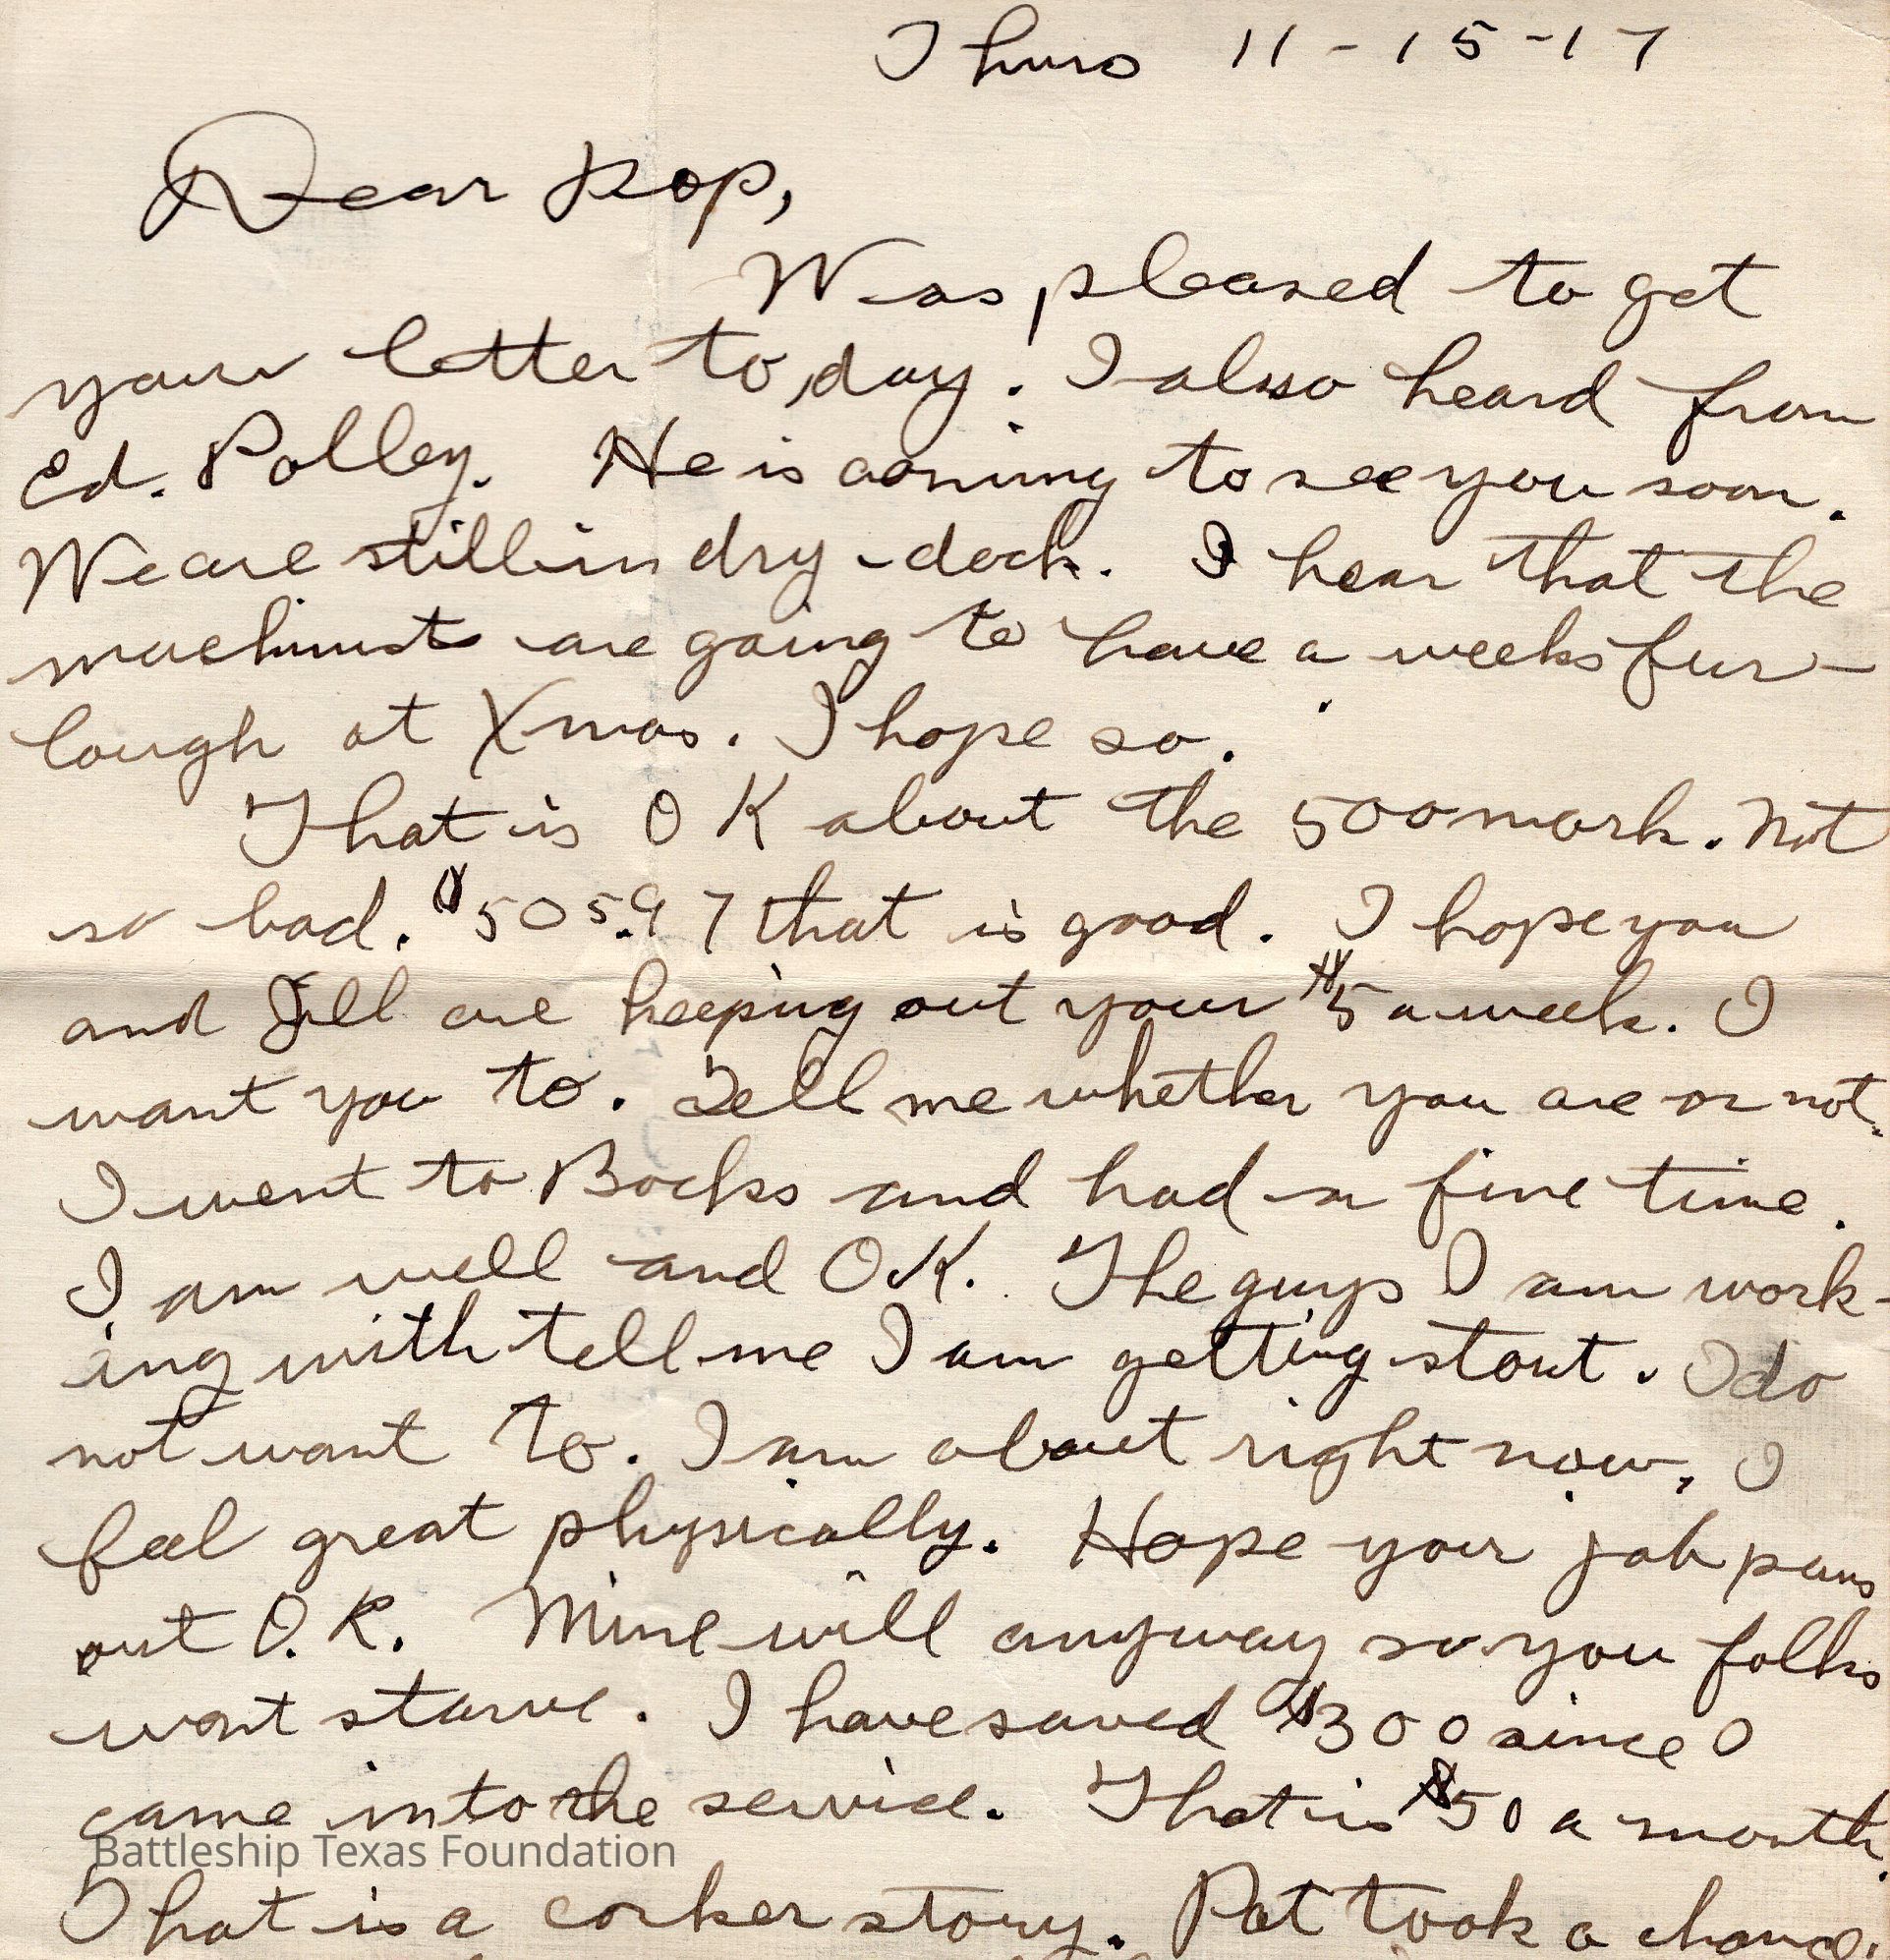 Thurs 11-15-17
Dear Pop,
Was pleased to get
your letter to day. I also heard from
Ed. Polley. He is coming to see you soon.
We are still in dry-dock. I hear that the
machinists are going to have a weeks fur-
lough at Xmas. I hope so.
That is O K about the 500 mark. Not
so bad. $505.97 that is good. I hope you
and Jill are keeping out your $5 a week. I
want you to. Tell me whether you are or not.
I went to Bocks and had a fine time.
I am well and O.K. The guys I am work-
ing with tell me I am getting stout. I do
not want to. I am about right now, I
feel great physically. Hope your job pans
out O.K. Mine will anyway so you folks
wont starve. I have saved $300 since I
came into the service. That is $50 a month.
Battleship Texas Foundation
That is a corker story. Pat took a chance.